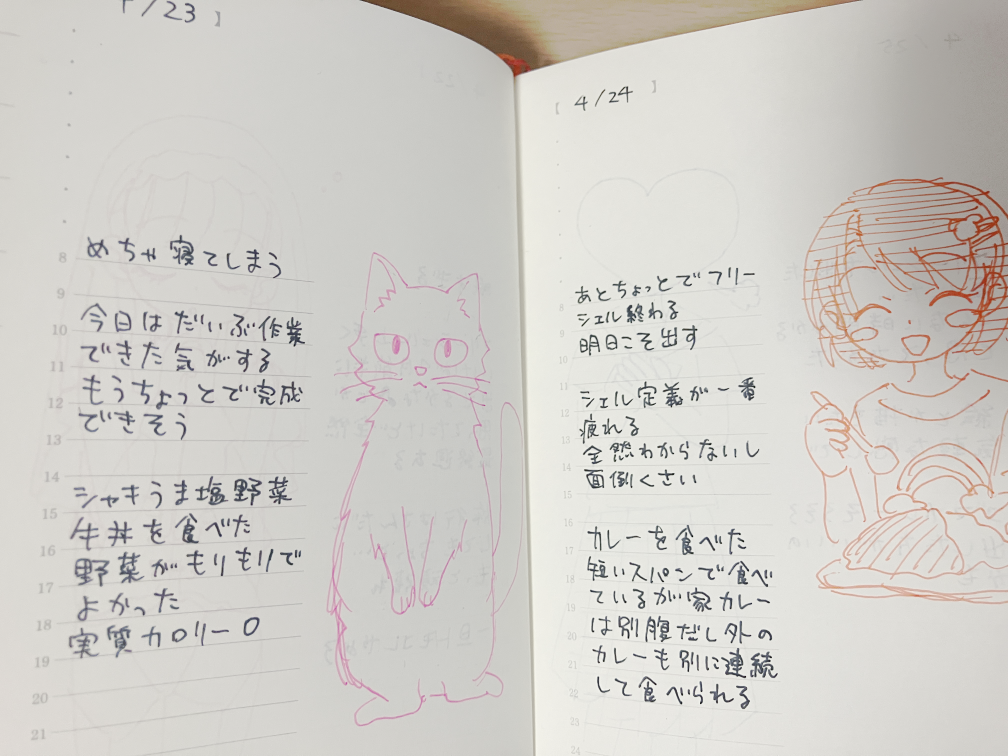 /23 】
8
めちゃ寝てしまう
9
10
今日はだいぶ作業
できた気がする
11
もうちょっとで完成
12
できそう
13
14
シャキうま塩野菜
15
牛丼を食べた
16
野菜がもりもりで
17
よかった
18
実質カロリー0
19
20
21
【 4/24 】
あとちょっとでフリー
8
シェル終わる
9
明日こそ出す
10
11
シェル定義が一番
12
疲れる
13
全然わからないし
14
面倒くさい
15
16
カレーを食べた
17
短いスパンで食べ
18
ているが家カレー
19
は別腹だし外の
20
カレーも別に連続
21
して食べられる
22
24